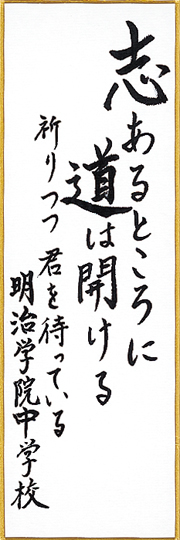 志あるところに
道は開ける
祈りつつ 君を待っている
明治学院中学校